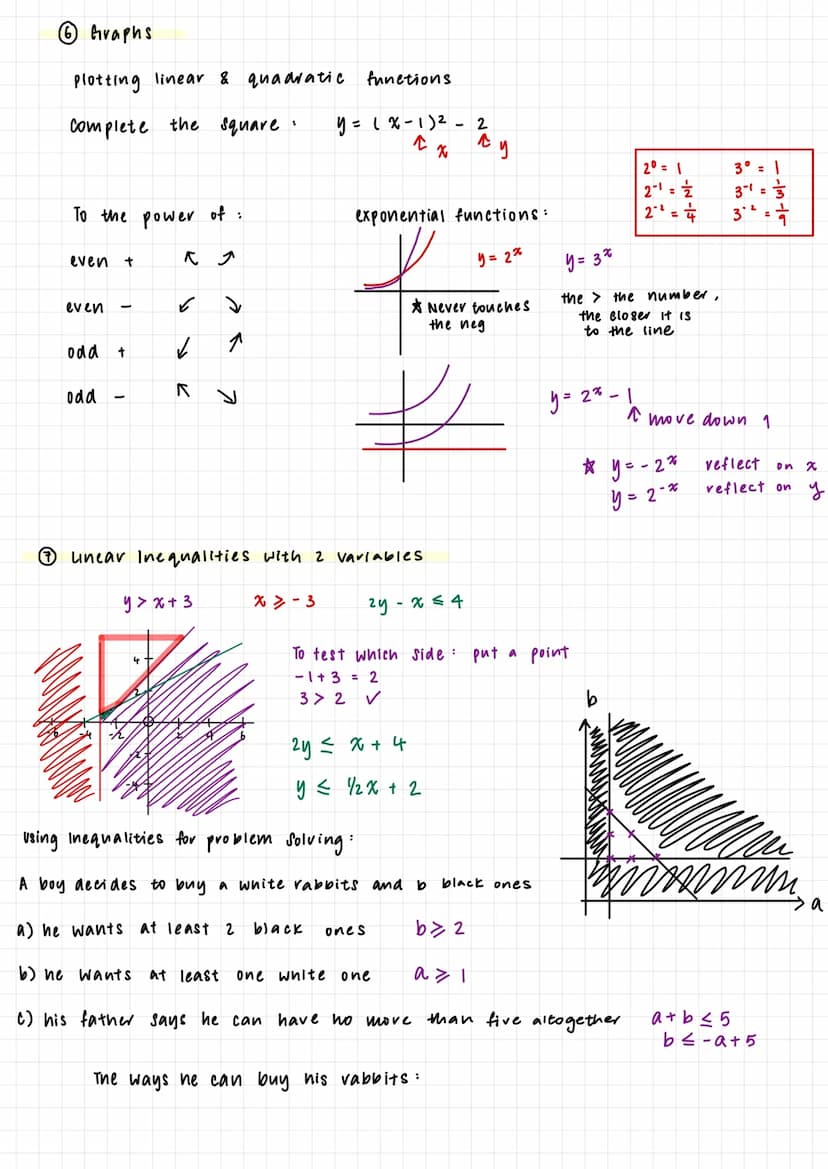 ⑥ Graphs
Plotting linear & quadratic functions
Complete the square : y = (x-1)² - 2
↑ x ↑ y
2⁰ = 1 3⁰ = 1
2⁻¹ = ½ 3⁻¹ = ⅓
2⁻² = ¼ 3⁻² = 1/9
To the power of :
even + ↖ ↗
even - ↙ ↘
odd + ↙ ↗
odd - ↖ ↘
exponential functions :
y = 2ˣ y = 3ˣ
★ Never touches
the neg
the > the number,
the closer it is
to the line
y = 2ˣ - 1
↑ move down 1
★ y = - 2ˣ reflect on x
y = 2⁻ˣ reflect on y
⑦ Linear Inequalities with 2 variables
y > x + 3 x ⩾ - 3 2y - x ≤ 4
4
2
-6 -4 -2 0 2 4 6
-2
-4
To test which side : put a point
-1 + 3 = 2
3 > 2 ✓
2y ≤ x + 4
y ≤ 1/2 x + 2
b
a
Using Inequalities for problem solving :
A boy decides to buy a white rabbits and b black ones
a) he wants at least 2 black ones b ⩾ 2
b) he wants at least one white one a ⩾ 1
c) his father says he can have no more than five altogether a + b ≤ 5
b ≤ -a + 5
The ways he can buy his rabbits :